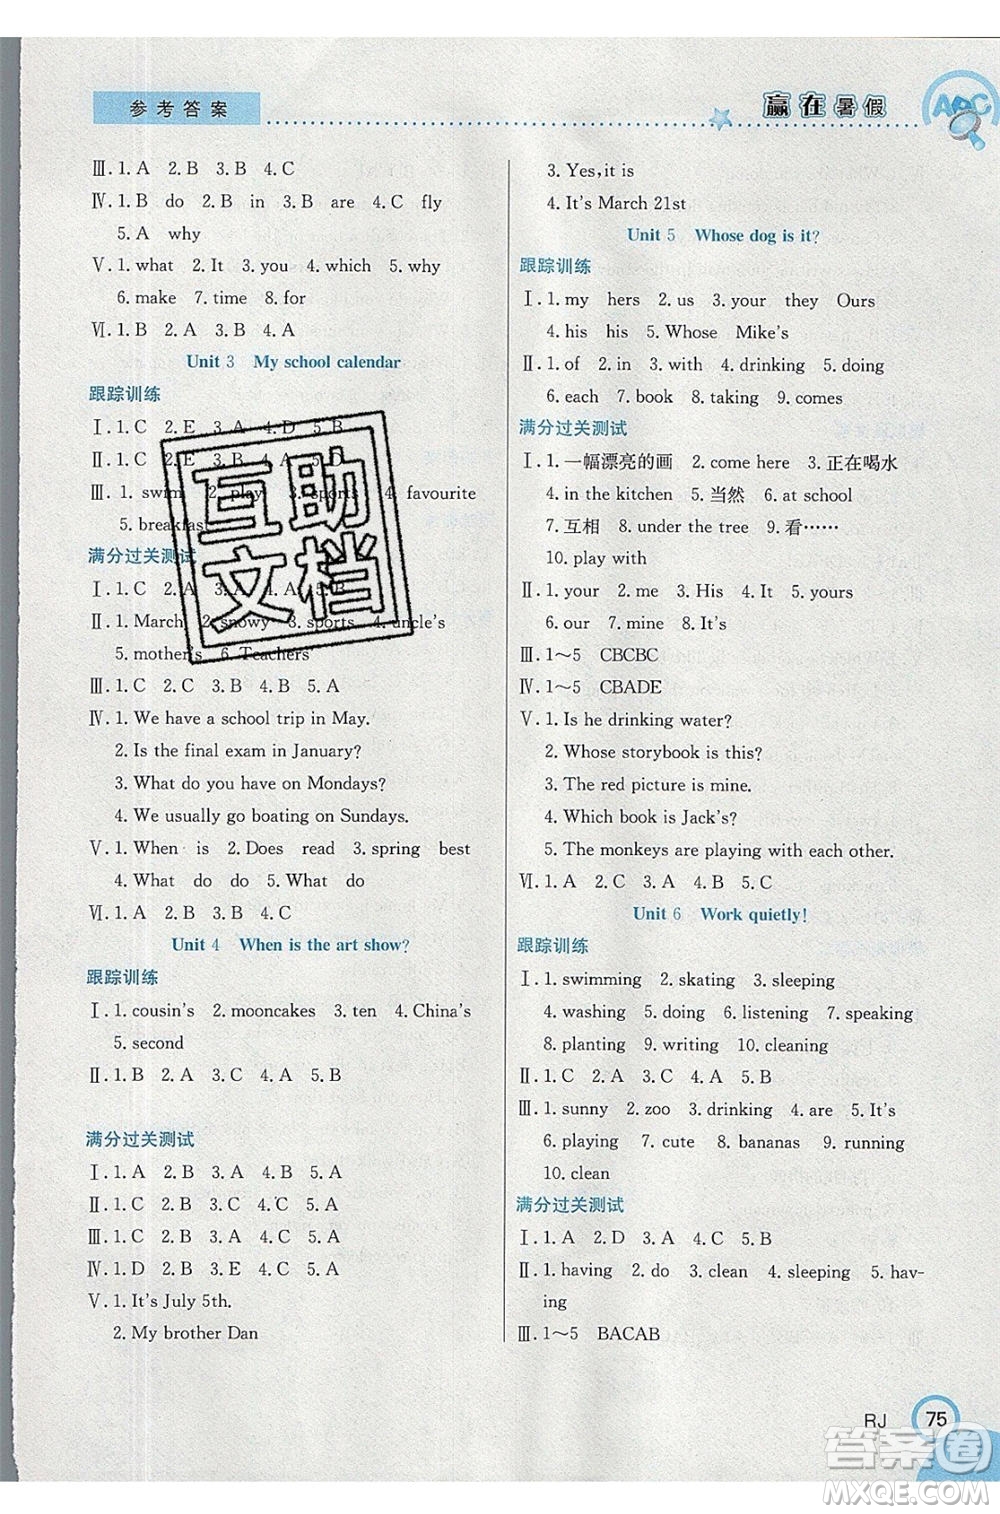 参考答案
赢在暑假
ABC
Ⅲ. 1. A 2. B 3. B 4. C
Ⅳ. 1. B do 2. B in 3. B are 4. C fly
5. A why
Ⅴ. 1. what 2. It 3. you 4. which 5. why
6. make 7. time 8. for
Ⅵ. 1. B 2. A 3. B 4. A
Unit 3 My school calendar
跟踪训练
Ⅰ. 1. C 2. E 3. A 4. D 5. B
Ⅱ. 1. C 2. B 3. A 4. C 5. B
Ⅲ. 1. swim 2. play 3. sports 4. favourite
5. breakfast
满分过关测试
Ⅰ. 1. C 2. A 3. A 4. C 5. A
Ⅱ. 1. March 2. snowy 3. sports 4. uncle's
5. mother's 6. Teachers'
Ⅲ. 1. C 2. C 3. B 4. B 5. A
Ⅳ. 1. We have a school trip in May.
2. Is the final exam in January?
3. What do you have on Mondays?
4. We usually go boating on Sundays.
Ⅴ. 1. When is 2. Does read 3. spring best
4. What do do 5. What do
Ⅵ. 1. B 2. A 3. A 4. C 5. B
Unit 4 When is the art show?
跟踪训练
Ⅰ. 1. cousin's 2. mooncakes 3. ten 4. China's
5. second
Ⅱ. 1. B 2. A 3. C 4. B 5. A
满分过关测试
Ⅰ. 1. A 2. B 3. A 4. B 5. A
Ⅱ. 1. C 2. B 3. A 4. C 5. A
Ⅲ. 1. C 2. B 3. C 4. B 5. A
Ⅳ. 1. D 2. B 3. E 4. C 5. A
Ⅴ. 1. It's July 5th.
2. My brother Dan
3. Yes, it is
4. It's March 21st
Unit 5 Whose dog is it?
跟踪训练
Ⅰ. 1. my hers 2. us 3. your they Ours
4. his his 5. Whose Mike's
Ⅱ. 1. of 2. in 3. with 4. drinking 5. doing
6. each 7. book 8. taking 9. comes
满分过关测试
Ⅰ. 1. 一幅漂亮的画 2. come here 3. 正在喝水
4. in the kitchen 5. 当然 6. at school
7. 互相 8. under the tree 9. 看……
10. play with
Ⅱ. 1. your 2. me 3. His 4. It 5. yours
6. our 7. mine 8. It's
Ⅲ. 1～5 CBCBC
Ⅳ. 1～5 CBADE
Ⅴ. 1. Is he drinking water?
2. Whose storybook is this?
3. The red picture is mine.
4. Which book is Jack's?
5. The monkeys are playing with each other.
Ⅵ. 1. A 2. C 3. B 4. B 5. C
Unit 6 Work quietly!
跟踪训练
Ⅰ. 1. swimming 2. skating 3. sleeping
4. washing 5. doing 6. listening 7. speaking
8. planting 9. writing 10. cleaning
Ⅱ. 1. C 2. B 3. A 4. A 5. B
Ⅲ. 1. sunny 2. zoo 3. drawing 4. are 5. It's
6. playing 7. cute 8. bananas 9. running
10. clean
满分过关测试
Ⅰ. 1. A 2. D 3. A 4. C 5. B
Ⅱ. 1. having 2. do 3. clean 4. sleeping 5. hav-
ing
Ⅲ. 1～5 BACAB
RJ 75
互助
文档
答案圈